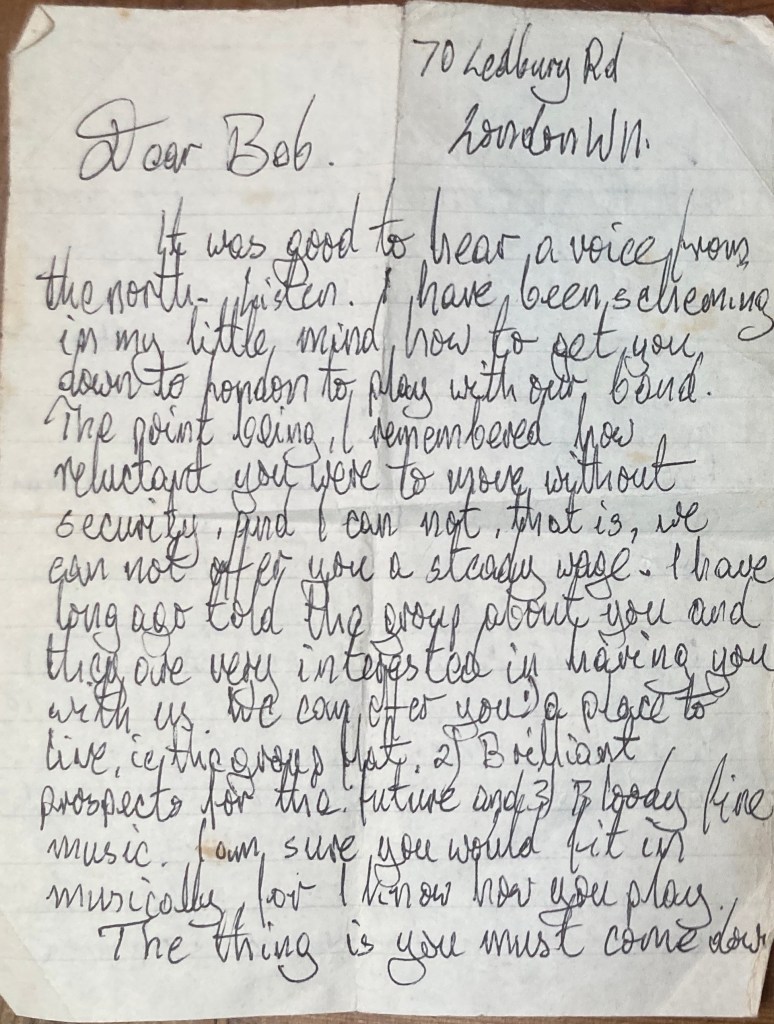 70 Ledbury Rd
London W11.
Dear Bob.
It was good to hear a voice from
the north. Listen. I have been scheming
in my little mind how to get you
down to London to play with our band.
The point being, I remembered how
reluctant you were to move without
security, and I can not, that is, we
can not offer you a steady wage. I have
long ago told the group about you and
they are very interested in having you
with us. We can offer you 1) a place to
live, ie the group flat, 2) Brilliant
prospects for the future and 3) Bloody fine
music. I am sure you would fit in
musically for I know how you play.
The thing is you must come down